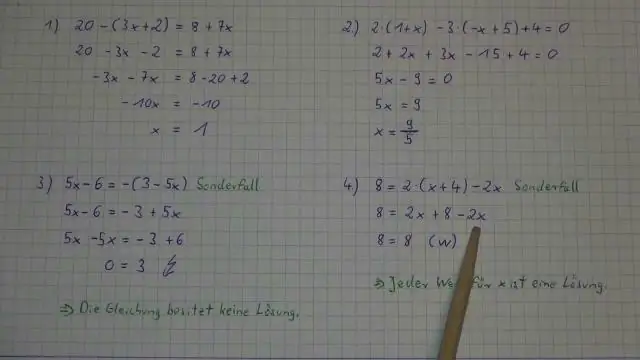 1) 20 - (3x+2) = 8 + 7x
20 - 3x - 2 = 8 + 7x
-3x - 7x = 8 - 20 + 2
-10x = -10
x = 1
2) 2·(1+x) - 3·(-x+5) + 4 = 0
2 + 2x + 3x - 15 + 4 = 0
5x - 9 = 0
5x = 9
x = 9/5
3) 5x - 6 = -(3 - 5x) Sonderfall
5x - 6 = -3 + 5x
5x - 5x = -3 + 6
0 = 3 ↯
⇒ Die Gleichung besitet keine Lösung.
4) 8 = 2·(x+4) - 2x Sonderfall
8 = 2x + 8 - 2x
8 = 8 (w)
⇒ Jeder für x ist eine Lösung.